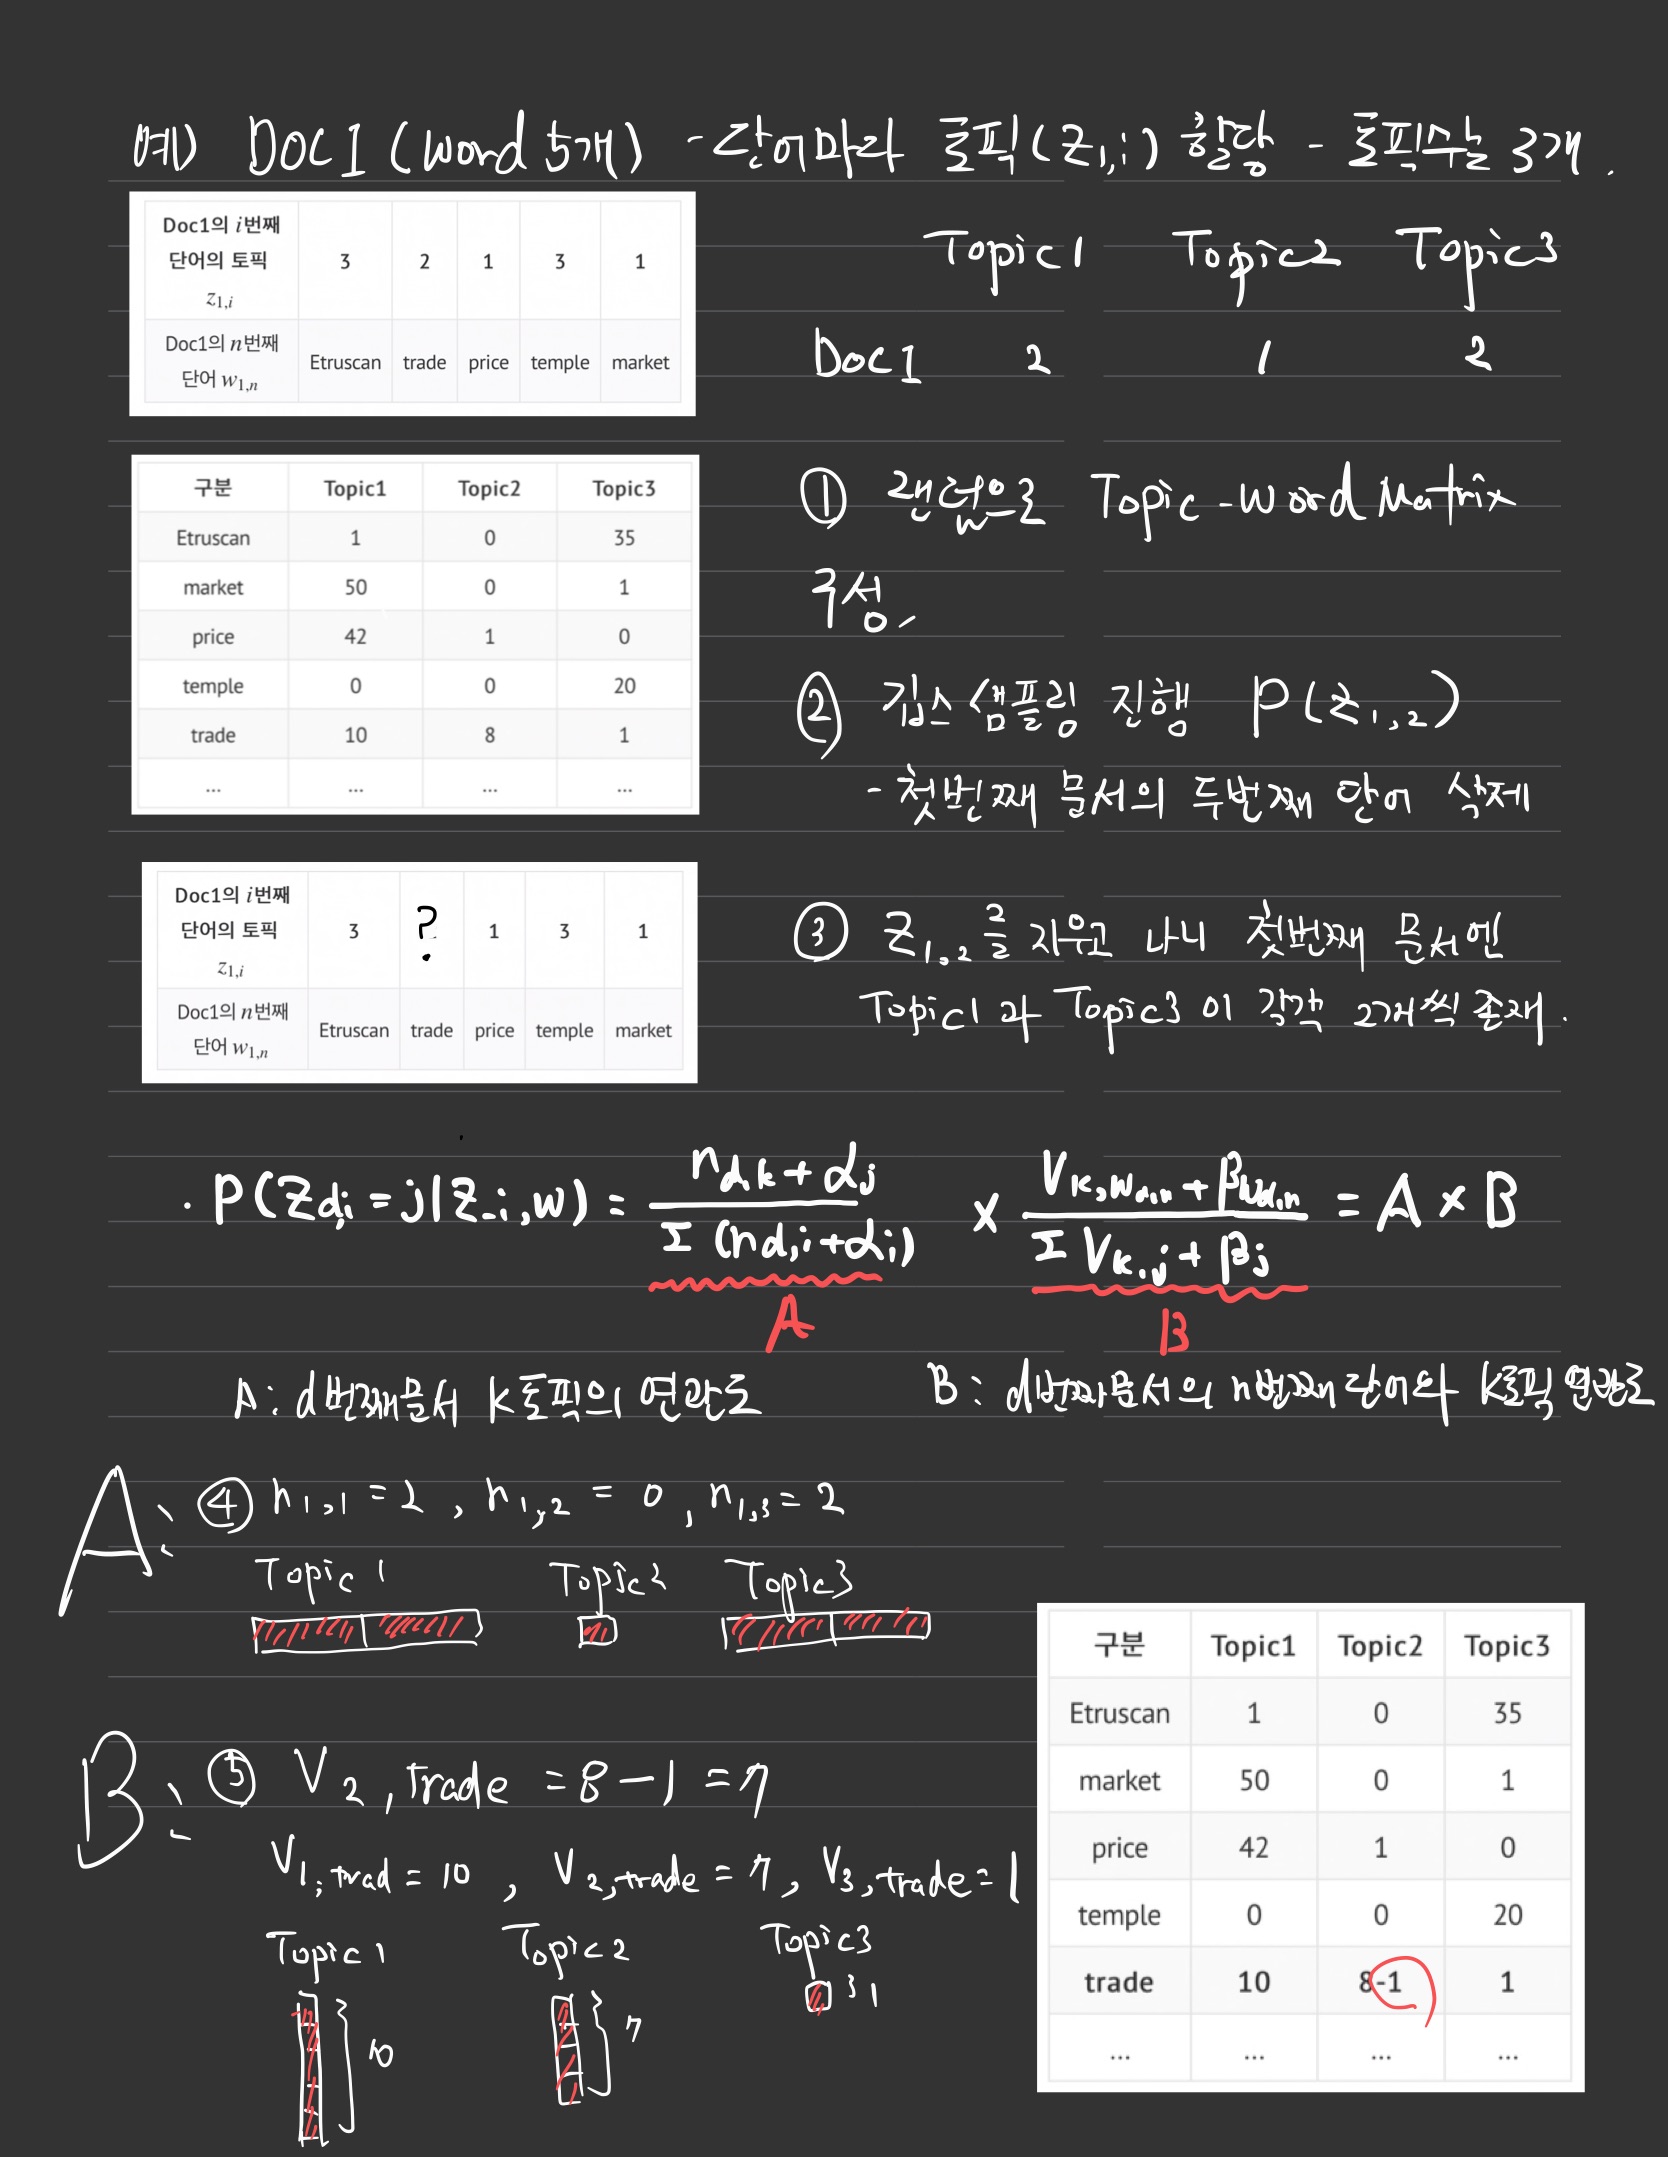 예) DOC1 (word 5개) - 단어마다 토픽(z1,i) 할당 - 토픽수는 3개.
Doc1의 i번째 단어의 토픽 z1,i 3 2 1 3 1
Doc1의 n번째 단어 w1,n Etruscan trade price temple market
Topic1 Topic2 Topic3
Doc1 2 1 2
구분 Topic1 Topic2 Topic3
Etruscan 1 0 35
market 50 0 1
price 42 1 0
temple 0 0 20
trade 10 8 1
... ... ... ...
① 랜덤으로 Topic-Word Matrix
구성,
② 깁스샘플링 진행 P(z1,2)
- 첫번째 문서의 두번째 단어 삭제
Doc1의 i번째 단어의 토픽 z1,i 3 ? 1 3 1
Doc1의 n번째 단어 w1,n Etruscan trade price temple market
③ z1,2를 지우고 나니 첫번째 문서엔
Topic1과 Topic3이 각각 2개씩 존재.
· P(zd,i = j | z-i, w) = nd,k + αj / Σ (nd,i + αi) × Vk,wd,n + βwd,n / Σ Vk,j + βj = A × B
A B
A: d번째문서 k토픽의 연관도
B: d번째문서의 n번째단어와 k토픽 연관도
A: ④ n1,1 = 2, n1,2 = 0, n1,3 = 2
Topic1 Topic2 Topic3
B: ⑤ V2,trade = 8-1 = 7
V1,trad = 10, V2,trade = 7, V3,trade = 1
Topic1 Topic2 Topic3
10 7 1
구분 Topic1 Topic2 Topic3
Etruscan 1 0 35
market 50 0 1
price 42 1 0
temple 0 0 20
trade 10 8-1 1
... ... ... ...